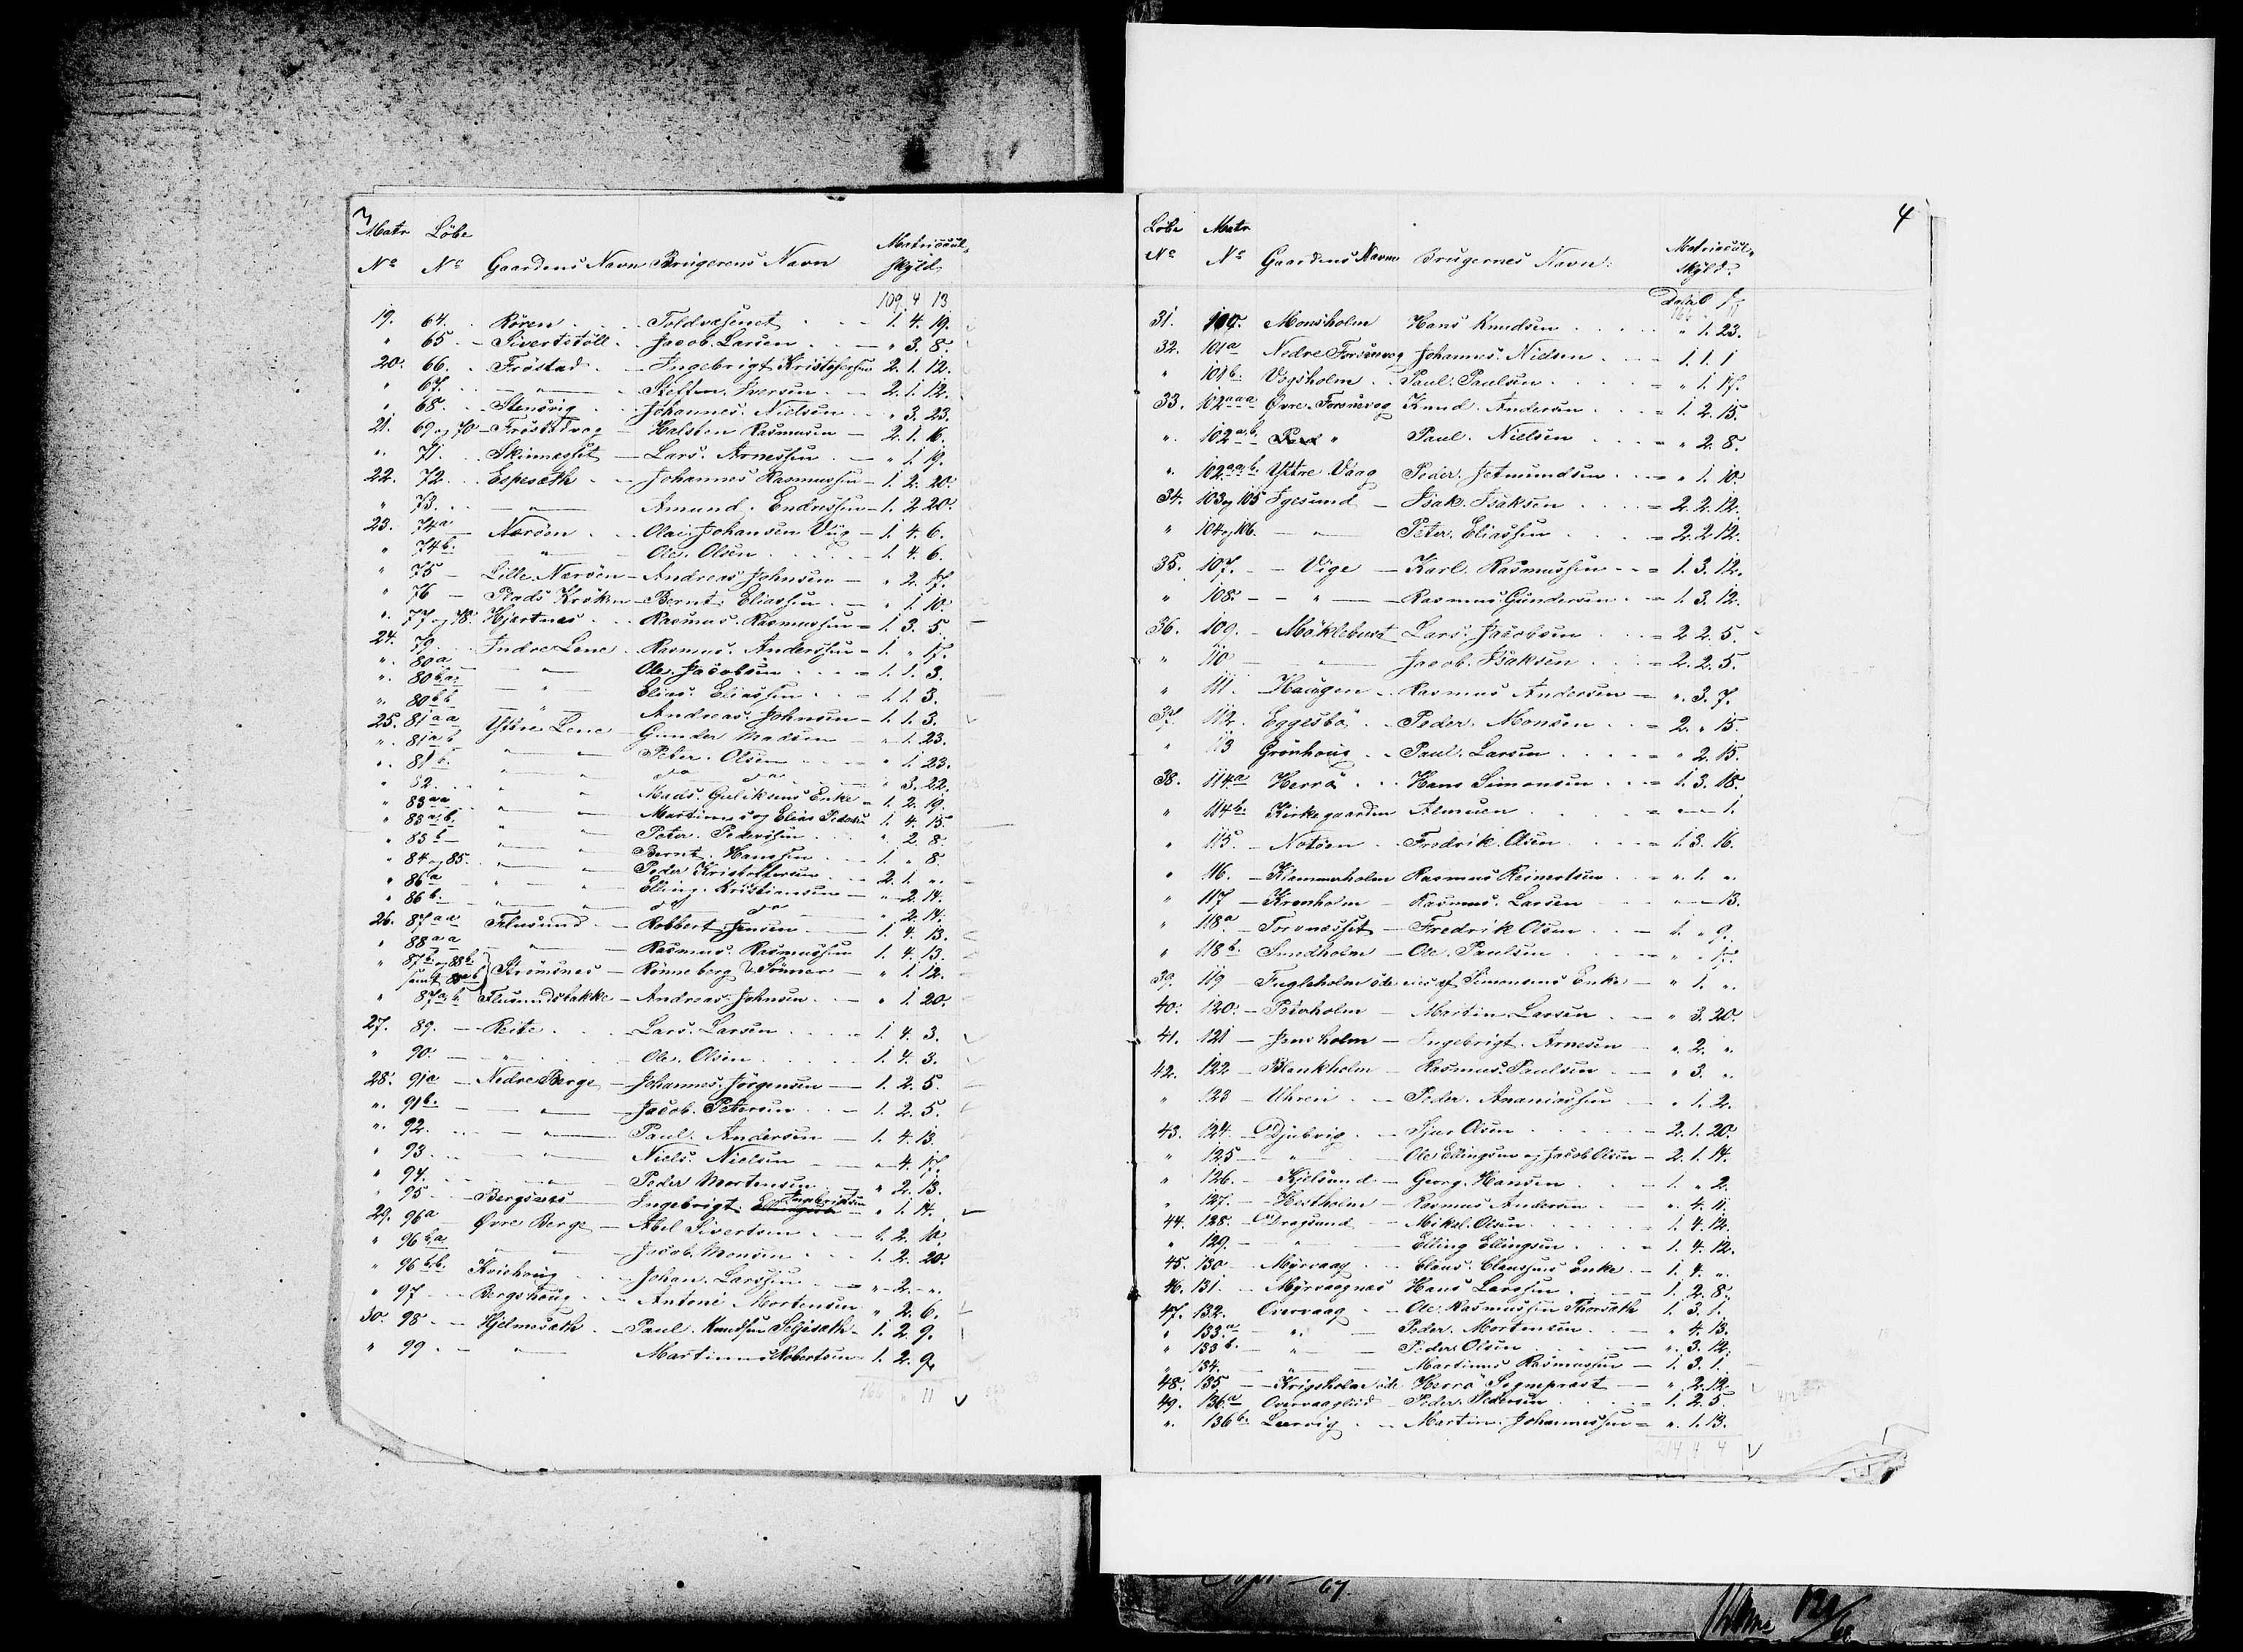 3
Matr Löbe
No No Gaardens Navn Brugerens Navn Matriccul, skyld
109. 4 13
19. 64. Rören Toldvæsenet 1. 4. 19.
" 65 Sivertstöll Jacob. Larsen " 3. 8.
20. 66. Fröstad Ingebrigt Kristofersen 2. 1. 12.
" 67. " Steffen. Iversen 2. 1. 12.
" 68. Stensvig Johannes. Nielsen " 3. 23.
21. 69 og 70 Fröstadvog Halsten Rasmusen 2. 1. 16.
" 71. Skinnæsset Lars. Arnessen " 1. 19.
22. 72. Espesæth Johannes Rasmussen 1. 2. 20.
" 73. " Amund. Endressen 1. 2 20.
23. 74a Næröen Olai. Johansen Viig 1. 4. 6.
" 74b. " Ole. Olsen 1. 4. 6.
" 75 Lille Næröen Andreas Johnsen " 2. 17.
" 76 Stads Kröken Bernt Eliassen " 1. 10.
" 77 og 78. Hjertnes Rasmus. Rasmussen 1. 3. 5.
24. 79. Indre Lene Rasmus. Anderssen 1. " 17.
" 80a " Ole. Jacobsen 1. 1. 3.
" 80b.a. " Elias. Eliassen 1. 1. 3.
" 80b.b " Andreas. Johnsen 1. 1. 3.
25. 81aa Ytre Lene Gunder Madsen " 1. 23.
" 81ab " " Peter. Olsen " 1. 23.
" 81b. " " do do " 3. 22.
" 82. " " Mads. Guliksens Enke 1. 2. 19.
" 83aa " " Martinus og Elias Peders. 1. 4. 15
" 83a.b. " " Peter. Pederssen " 2. 8.
" 83b " " Bernt. Hanssen 1. " 8.
" 84 og 85. " " Peder Kristoffersen 2. 1. "
" 86a " " Elling. Kristiansen " 2. 14.
" 86b. " " do do " 2. 14.
26. 87aa Flusund Robbert Jensen 1. 4. 13.
" 88aa " Rasmus. Rasmussen 1. 4. 13.
" 87b og 88b samt 88ab Strömsnes Rönneberg & Sönner " 1. 12.
" 87a,b. Flusundsbakke Andreas. Johnsen " 1. 20.
27. 89. Reite Lars. Larsen 1. 4. 3.
" 90. " Ole. Olsen 1. 4. 3.
28. 91a Nedre Berge Johannes. Jörgensen 1. 2. 5.
" 91b. " Jacob. Petersen 1. 2. 5.
" 92. " Paul. Andersen 1. 4. 13.
" 93. " Niels. Nielsen " 4. 17.
" 94. " Peder Mortensen " 2. 13.
" 95 Bergsnes Ingebrigt. Ingebrigtsen " 1. 14.
29. 96a Övre Berge Abel Sivertsen 1. 2. 10.
" 96b.a " Jacob. Monsen 1. 2. 20.
" 96b.b. Kvichoug Johan. Larssen " 2. ".
" 97 Bergshoug Antoni Mortensen " 2. 6.
30. 98. Hjelmesæth Paul. Knudsen Seljesæth 1. 2. 9.
" 99. " Martinus Robertsen 1. 2. 9.
" 11
4
Löbe Matr
No No Gaardens Navne Brugernes Navn. Matriccul, skyld.
Daler O ſ
31. 100. Monsholm Hans Knudsen " 1. 23.
32. 101a Nedre Forsnevog Johannes. Nielsen 1. 1. 1
" 101b. Vogsholm Paul. Paulsen " 1. 17.
33. 102aaa Övre Forsnevog Knud. Andersen 1. 2. 15.
" 102a,b. " Paul. Nielsen " 2. 8.
" 102aab. Yttre Vaag Peder. Jetmundsen " 1. 10.
34. 103 og 105 Igesund Isak. Isaksen 2. 2. 12.
" 104 og 106. " Peter. Eliassen 2. 2 12.
35. 107. Vige Karl. Rasmussen 1. 3. 12.
" 108. " Rasmus. Gundersen 1. 3. 12.
36. 109. Möklebust Lars. Jacobsen 2 2. 5.
" 110 " Jacob. Isaksen 2. 2. 5.
" 111. Haugen Rasmus Andersen " 3. 7.
37. 112. Eggesbö Peder. Monsen 2. " 15.
" 113 Grönhoug Paul. Larsen " 2. 15.
38. 114.a Herrö Hans Simonsen 1. 3. 18.
" 114b. Kirkegaarden Almuen " " 1.
" 115. Notöen Fredrik. Olsen 1. 3. 16.
" 116. Klammerholm Rasmus Reimetsen " 1. "
" 117 Krenholm Rasmus. Larsen " " 13.
" 118a Torvnæsset Fredrik Olsen 1. " 9.
" 118b. Sundholm Ole. Paulsen " " 17.
39. 119 Fugleholm öde eies af Simonsens Enke " 1. "
40. 120. Peterholm Martin Larsen " 3. 20.
41. 121 Jensholm Ingebrigt. Arnesen " 2. "
42. 122 Blankholm Rasmus. Paulsen " 3. "
" 123 Uhren Peder. Ananiassen " 1. 2.
43. 124. Djubvig Sjur Olsen 2. 1. 20.
" 125 " Ole Ellingsen og Jacob Olsen 2. 1. 14.
" 126. Kjelsund Georg. Hansen 1. " 2.
" 127. Hestholm Rasmus Andersen " 4. 11.
44. 128. Dragsund Mikel. Olsen 1. 4. 12.
" 129. " Elling Ellingsen 1. 4. 12.
45. 130 Myrvaag Claus. Claussens Enke 1. 4. "
46. 131. Myrvaagnes Hans Larssen 1. 2. 8.
47. 132. Overvaag Ole. Rasmussen Thorsæth 1. 3. 1.
" 133.a " Peder. Mortensen " 4. 13.
" 133b. " Peder Olsen " 3. 12.
" 134. " Martinus Rasmussen 1. 3. 1.
48. 135 Krigsholm öde Herrö Sogneprest " 2. 12.
49. 136.a Overvaaglied Peder. Pedersen 1. 2. 5.
" 136b. Leervig Martin. Johannessen " 1. 13.
214 4 4
67.